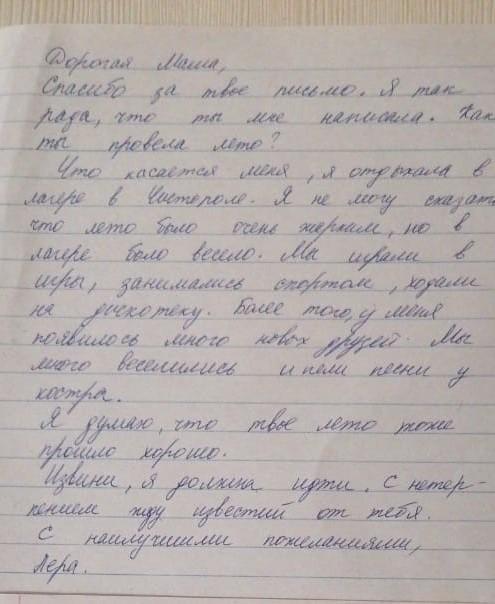 Дорогая Маша,
Спасибо за твое письмо. Я так
рада, что ты мне написала. Как
ты провела лето?
Что касается меня, я отдыхала в
лагере в Чистополе. Я не могу сказать
что лето было очень жарким, но в
лагере было весело. Мы играли в
игры, занимались спортом, ходили
на дискотеку. Более того, у меня
появилось много новых друзей. Мы
много веселились и пели песни у
костра.
Я думаю, что твое лето тоже
прошло хорошо.
Извини, я должна идти. С нетер-
пением жду известий от тебя.
С наилучшими пожеланиями,
Лера.